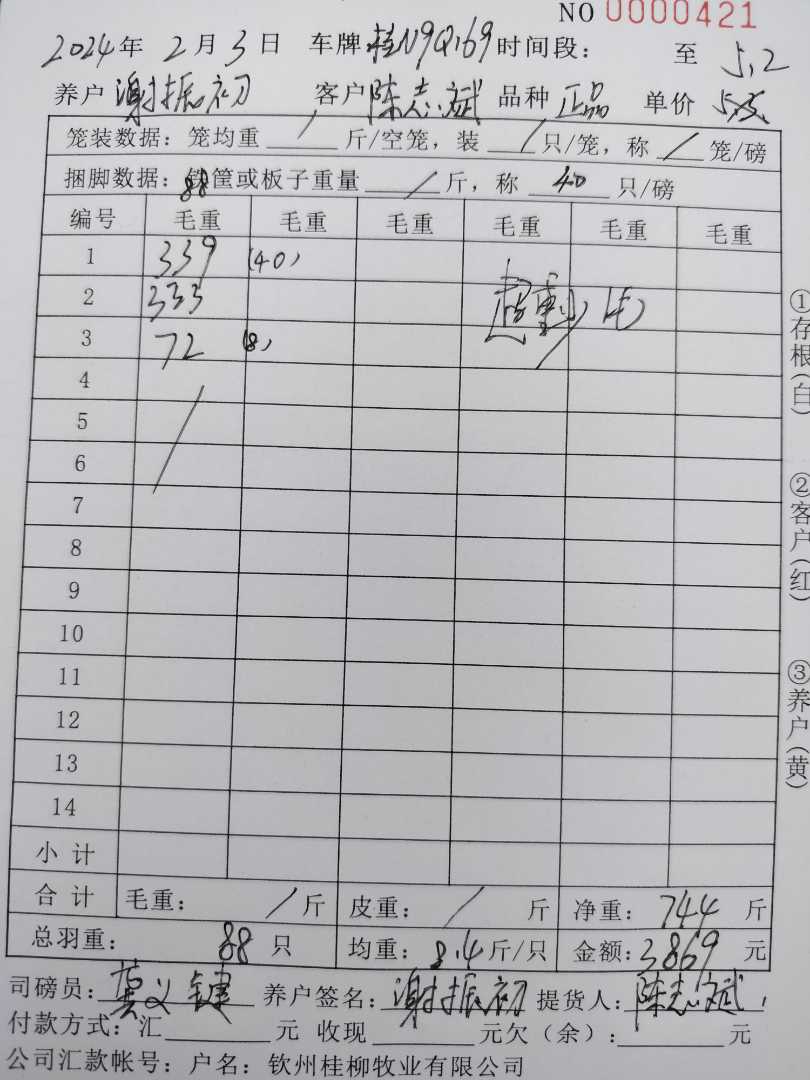 NO 0000421
2024年 2月 3日 车牌 桂N9Q169 时间段: 至 5.2
养户 谢振初 客户 陈志斌 品种 正品 单价
笼装数据: 笼均重 / 斤/空笼, 装 / 只/笼, 称 / 笼/磅
捆脚数据: 筐或板子重量 / 斤, 称 40 只/磅
编号 毛重 毛重 毛重 毛重 毛重 毛重
1 339 (40)
2 333 超重
3 72 (8)
4
5
6
7
8
9
10
11
12
13
14
小计
合计 毛重: / 斤 皮重: / 斤 净重: 744 斤
总羽重: 88 只 均重: 8.4 斤/只 金额: 3869 元
司磅员: 养户签名: 谢振初 提货人: 陈志斌
付款方式: 汇 元 收现 元欠(余): 元
公司汇款帐号: 户名: 钦州桂柳牧业有限公司
①存根(白)
②客户(红)
③养户(黄)